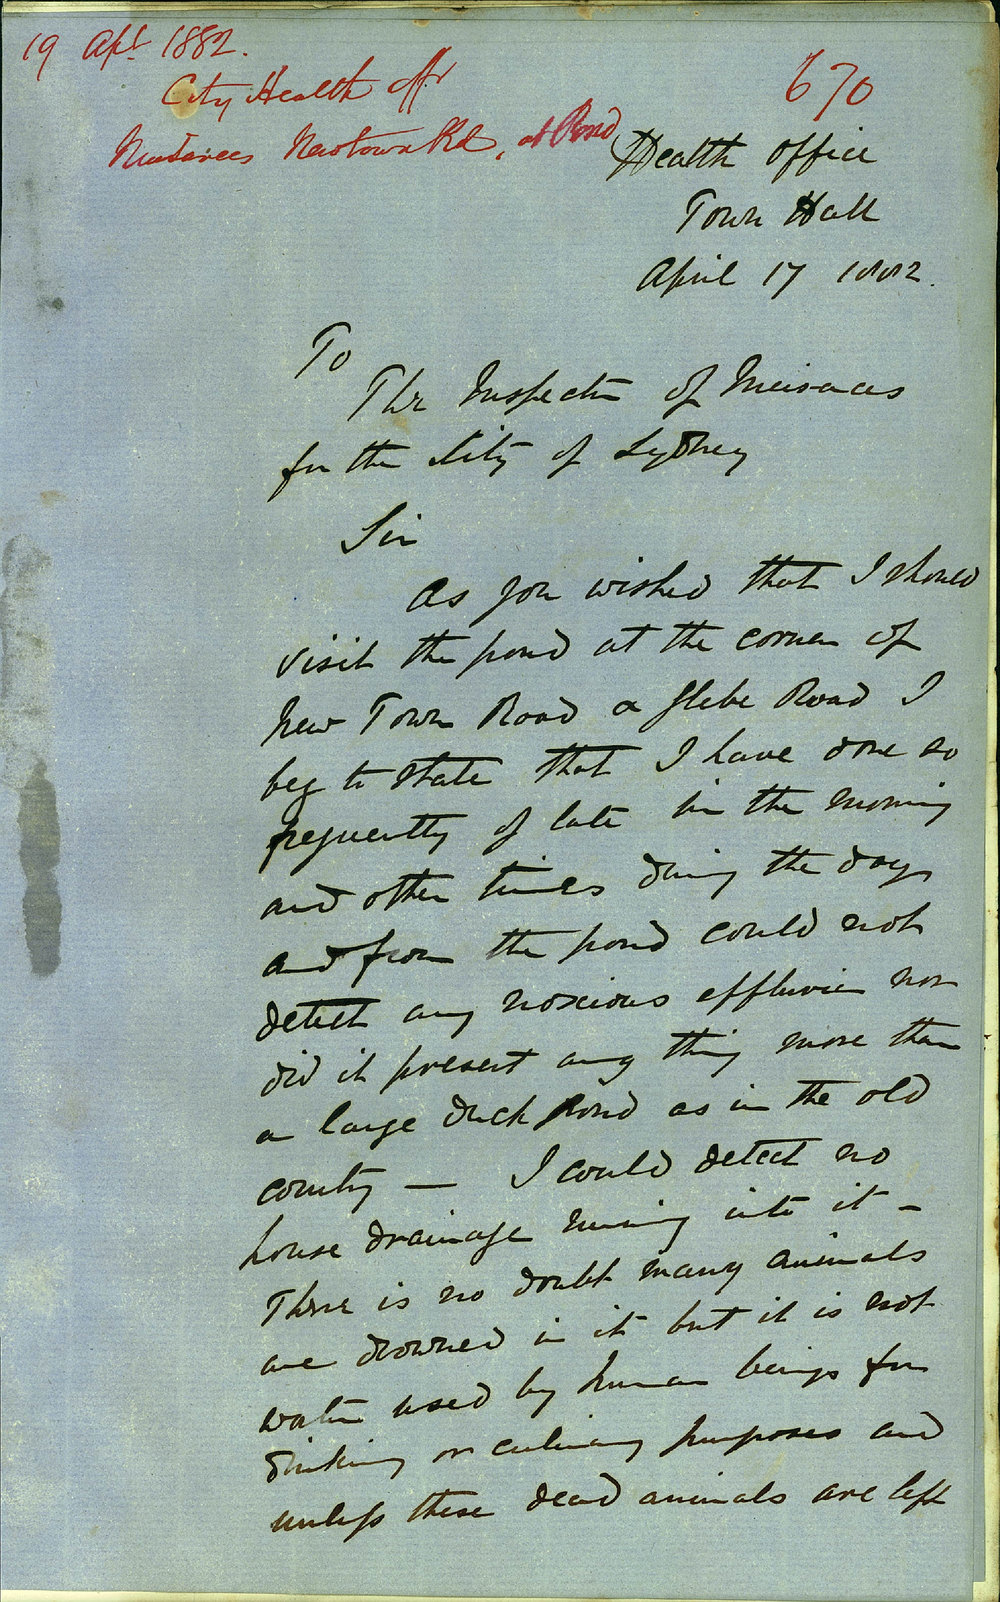 19 Apl 1882.
City Health offr
670
Nuisances Newtown Rd, at Pond
Health Office
Town Hall
April 17 1882.
To
The Inspector of Nuisances
for the City of Sydney
Sir
As you wished that I should
visit the pond at the corner of
New Town Road & Glebe Road I
beg to state that I have done so
frequently of late in the morning
and other times during the day
and from the pond could not
detect any noxious effluvia nor
did it present any thing more than
a large duck pond as in the old
country — I could detect no
house drainage running into it –
There is no doubt many animals
are drowned in it but it is not
water used by human beings for
drinking or culinary purposes and
unless these dead animals are left